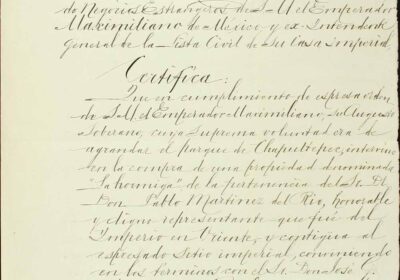 de Negocios Estrangeros de S. M. el Emperador
Maximiliano de México y ex-Intendente
General de la Lista Civil de Su Casa Imperial,
Certifica:
Que en cumplimiento de espresa orden
de S. M. el Emperador Maximiliano, su Augusto
Soberano, cuya Suprema voluntad era de
agrandar el parque de Chapultepec, intervino
en la compra de una propiedad denominada
"La hormiga" de la pertenencia del Sr. D.
Don Pablo Martinez del Rio, honorable
y digno representante que fué del
Imperio en Oriente, y contigua al
espresado Sitio imperial, conviniendo
en los terminos con el Sr. Don José